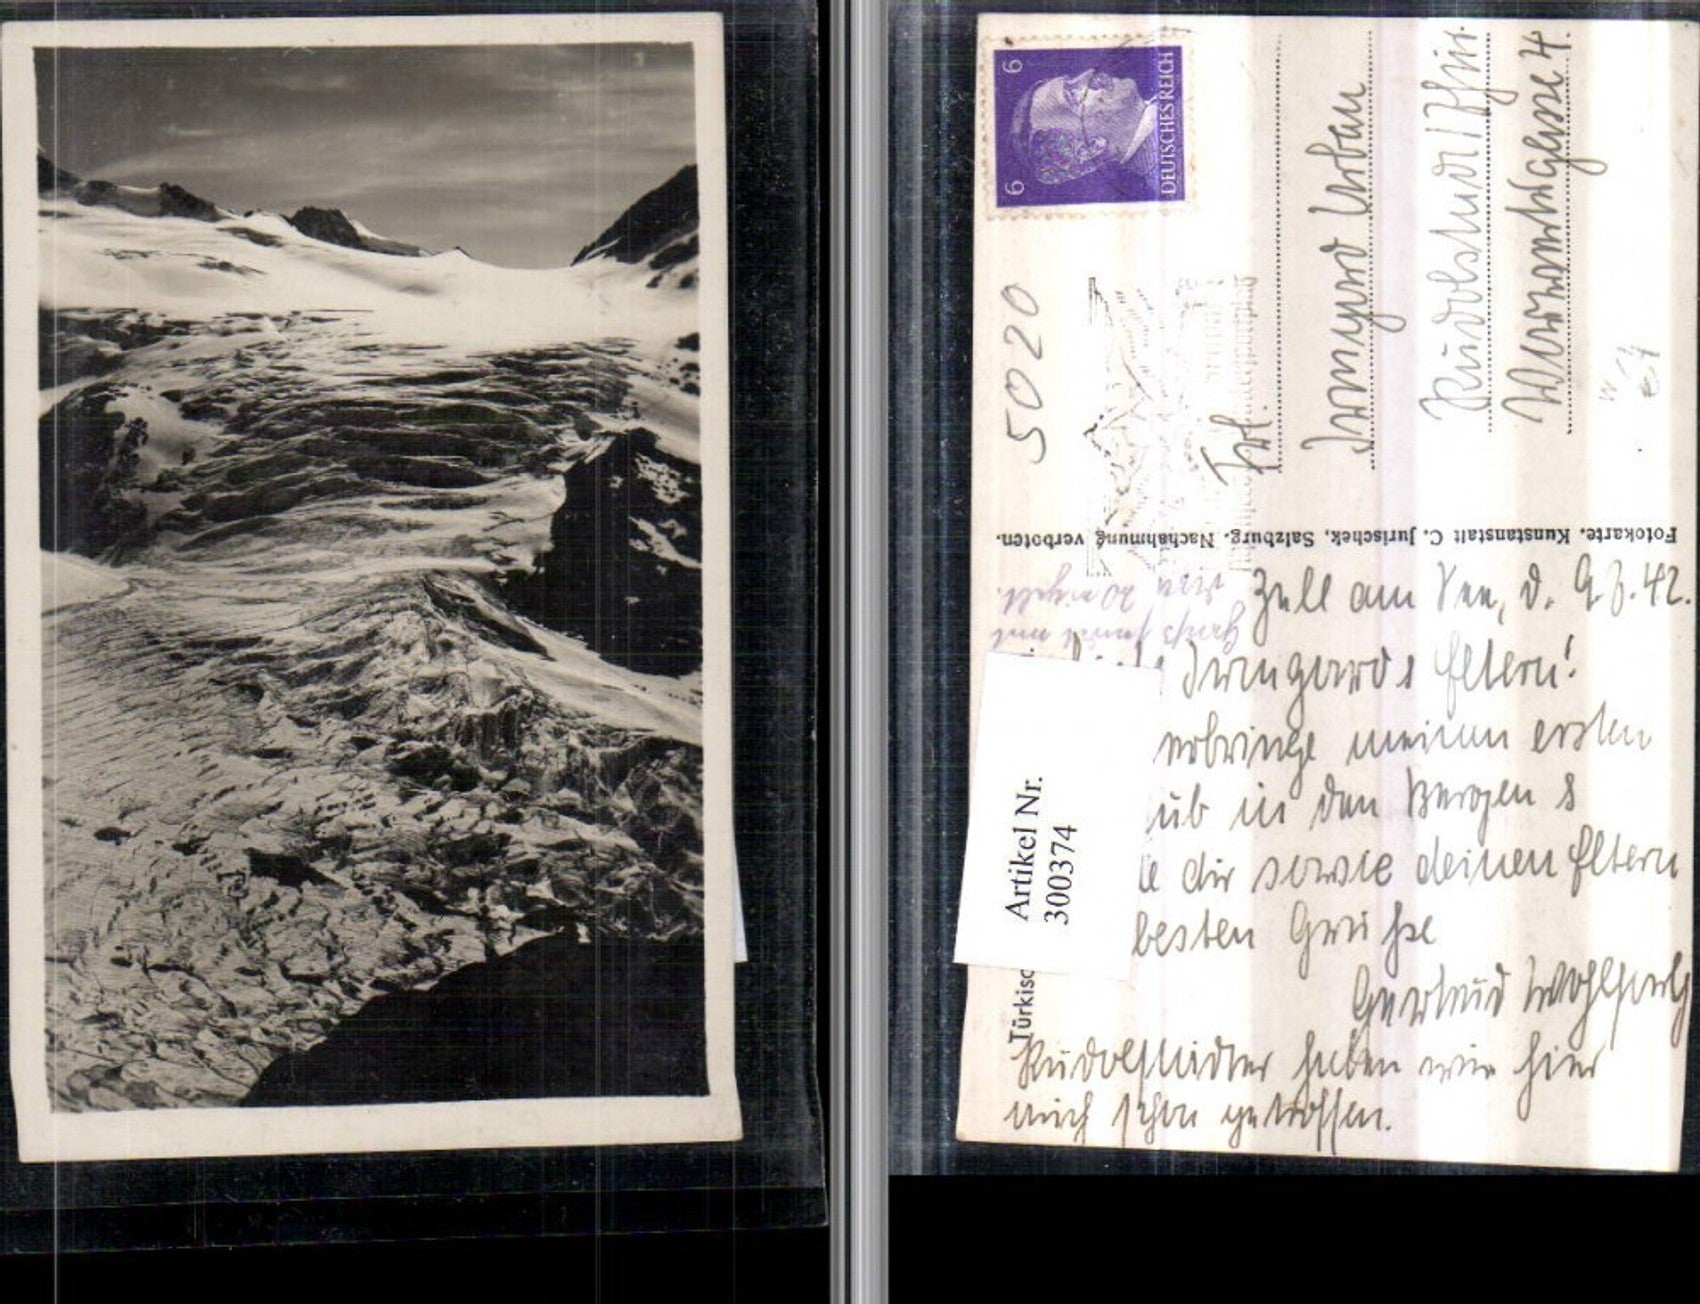 6 6
DEUTSCHES REICH
5020
Frl.
Irmgard Urban
Rudolstadt / Thür.
4.
Fotokarte. Kunstanstalt C. Jurischek, Salzburg. Nachahmung verboten.
Zell am See, d. 9.3.42.
Irmgard & Eltern!
erbringe meinen ersten
ub in den Bergen &
e dir sowie deinen Eltern
besten Grüße
Gertrud
Rudolstädter haben wir hier
auch schon getroffen.
Türkisc
Artikel Nr.
300374